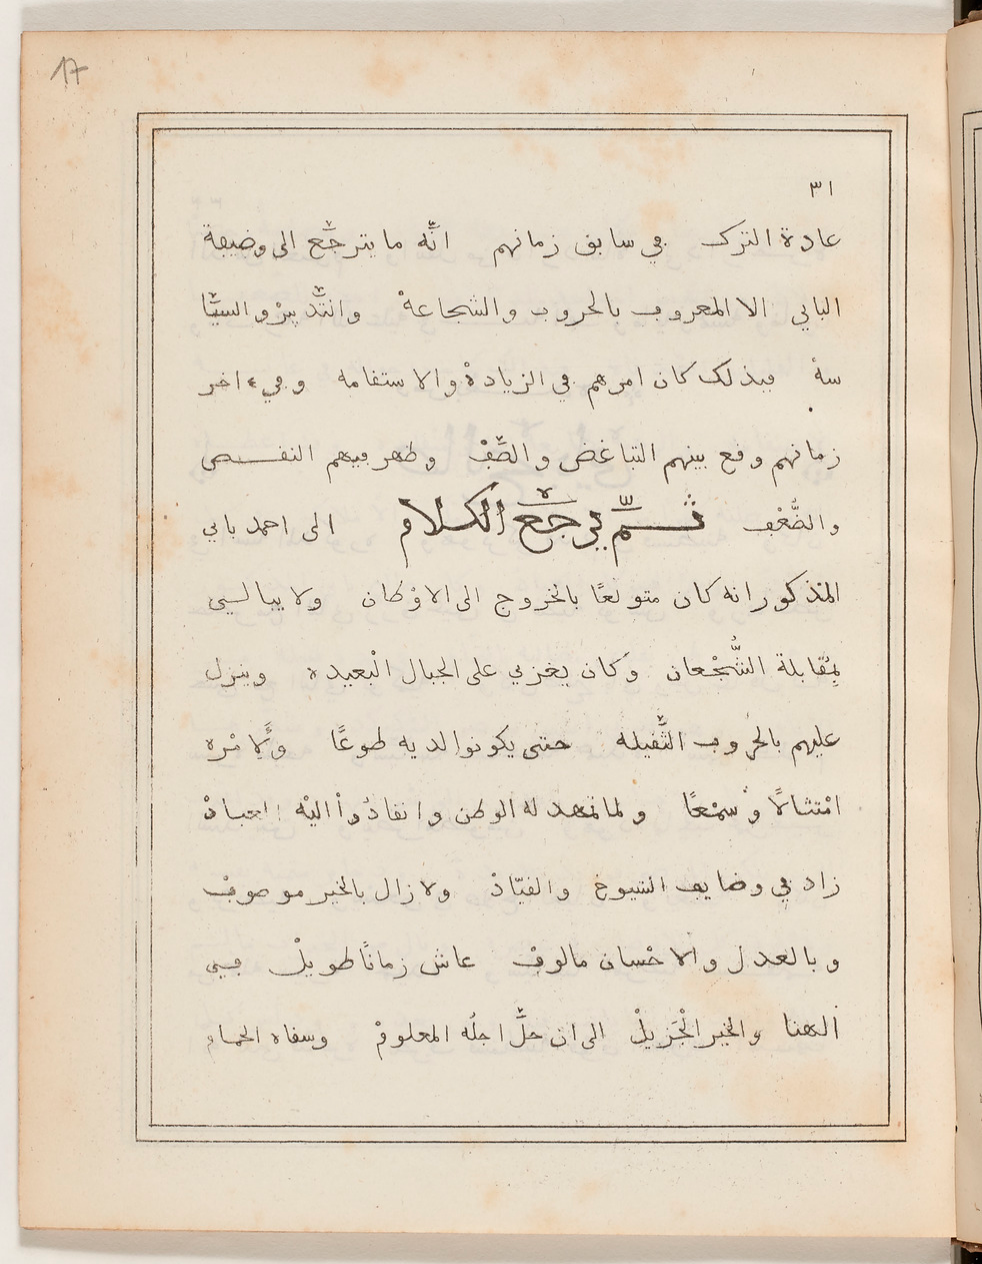 17
٣١
عادة الترك في سابق زمانهم انّه ما يترجّع الى وضيفة
الباي الا المعروف بالحروب والشجاعةْ والتّدبيرْ والسيّا
سةْ فبذلك كان امرهم في الزيادةْ والاستقامه وفيء اخر
زمانهم وقع بينهم التباغض والضّعْفْ وظهر فيهم النقص
والضُّعْف ثمّ يرجّع الكلام الى احمد باي
المذكور انه كان متولعًا بالخروج الى الاوْطان ولا يبالي
بِمُقابلة الشُّجْعان وَكان يغزي على الجبال الْبعيده وينزل
عليهم بالحروب الثّقيله حتى يكونوا لديه طوعًا ولامْره
امْتثالاً وسمْعًا ولما تمهد له الوطن وانقادُواْ اليْه العبادْ
زاد في وضايف الشيوخ والقيّادْ ولا زال بالخير موصوفْ
وبالعدل والاحْسان مالوفْ عاش زمانًا طويلْ في
الهنا والخير الْجَزيلْ الى ان حلّ اجله المعلومْ وسقاه الحمام